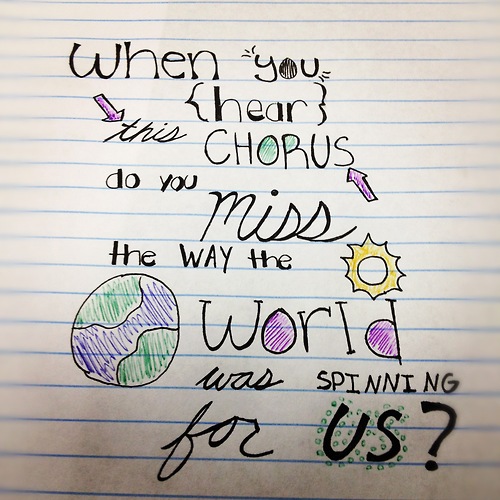 when you
{hear}
this CHORUS
do you
miss
the WAY the
World
was SPINNING
for US?